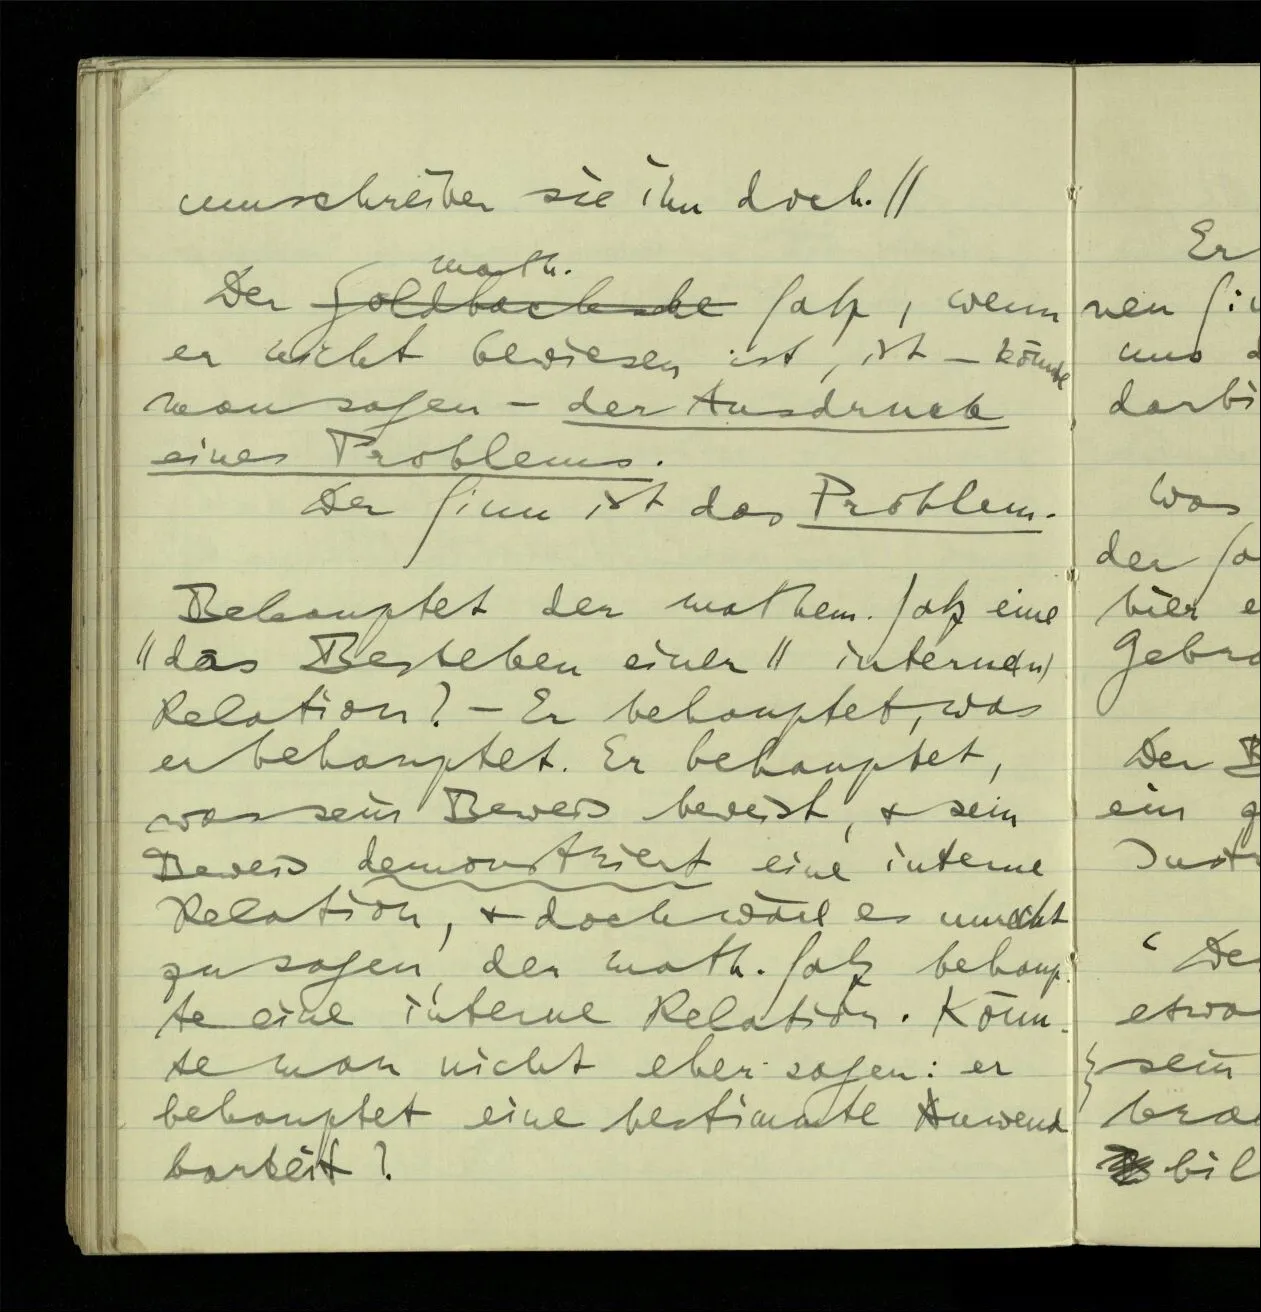 umschreiben sie ihn doch.//
math.
Der Goldbachsche Satz, wenn
er nicht bewiesen ist, ist – könnte
man sagen – der Ausdruck
eines Problems.
Der Sinn ist das Problem.
Behauptet der mathem. Satz eine
//das Bestehen einer// interne(n)
Relation? – Er behauptet, was
er behauptet. Er behauptet,
was sein Beweis beweist, & sein
Beweis demonstriert eine interne
Relation, & doch wäre es unrecht
zu sagen, der math. Satz behaup-
te eine interne Relation. Könn-
te man nicht eher sagen: er
behauptet eine bestimmte Anwend
barkeit?
Er
nen
uns
darbi
Was
der
hier e
Gebra
Der B
ein g
Instr
‘De
etwa
sein
bra
bil